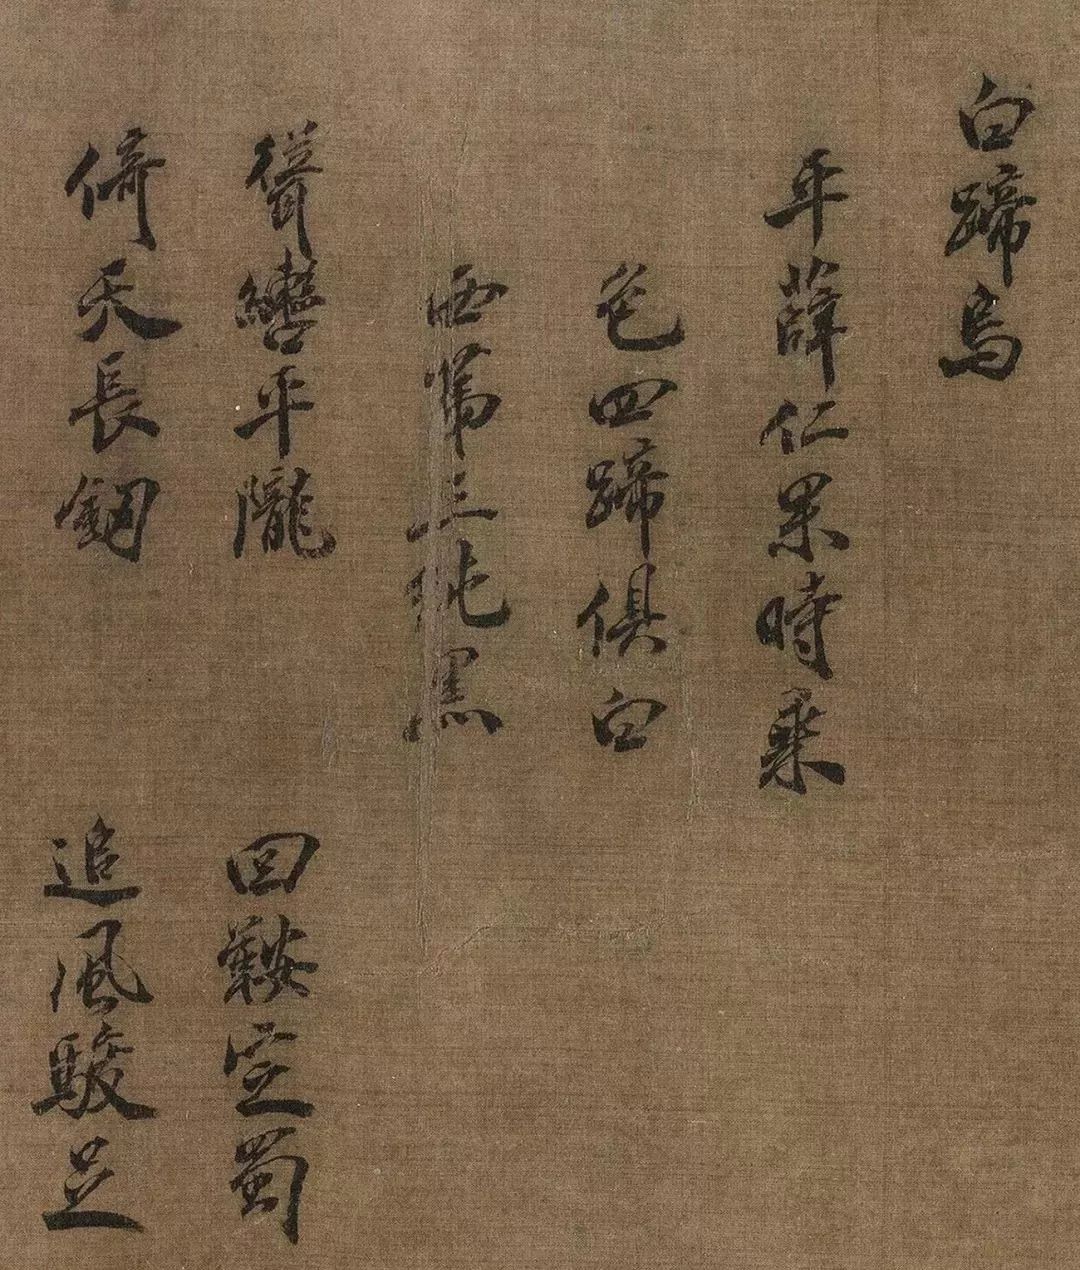 白蹄烏
平薛仁果時乘
色四蹄俱白
西第三純黑
聳轡平隴 回鞍定蜀
倚天長釼 追風駿足